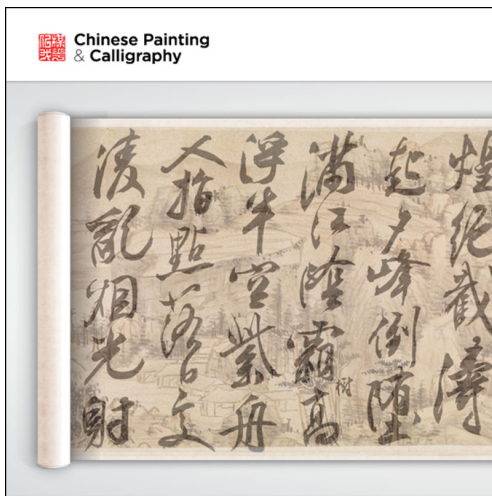 Chinese Painting
& Calligraphy
煌絕截濤
起夕峰倒墮
滿江陰霜高
樹
浮半空紫舟
人指點落日交
凌亂烟光射